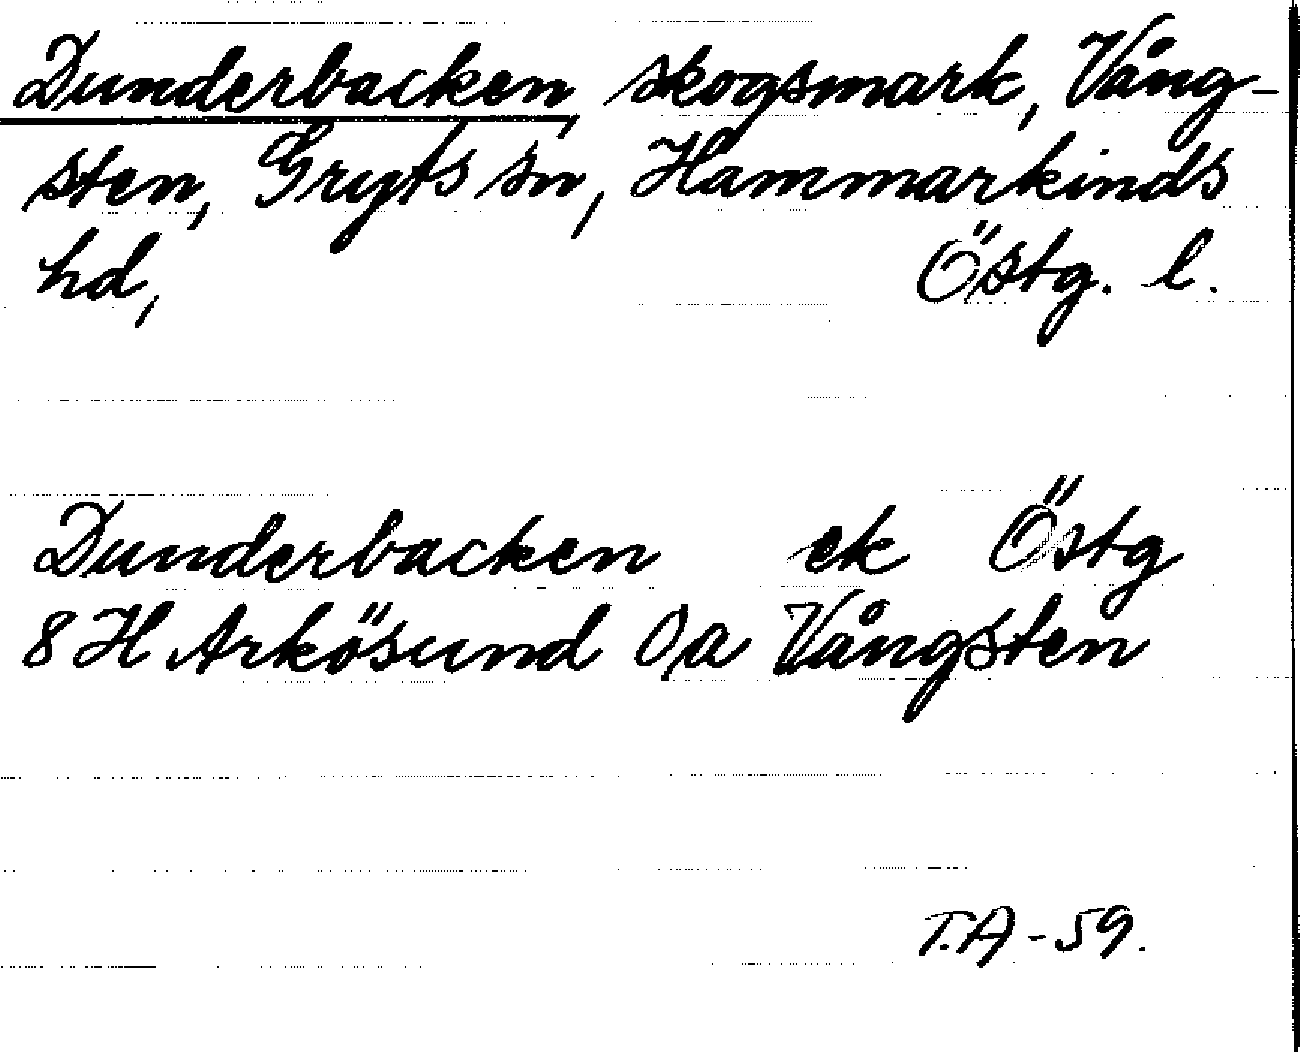 Dunderbacken, skogsmark, Vång-
sten, Gryts sn, Hammarkinds
hd, Östg. l.
Dunderbacken ek Östg
8 H Arkösund 0/a Vångsten
T.A-59.